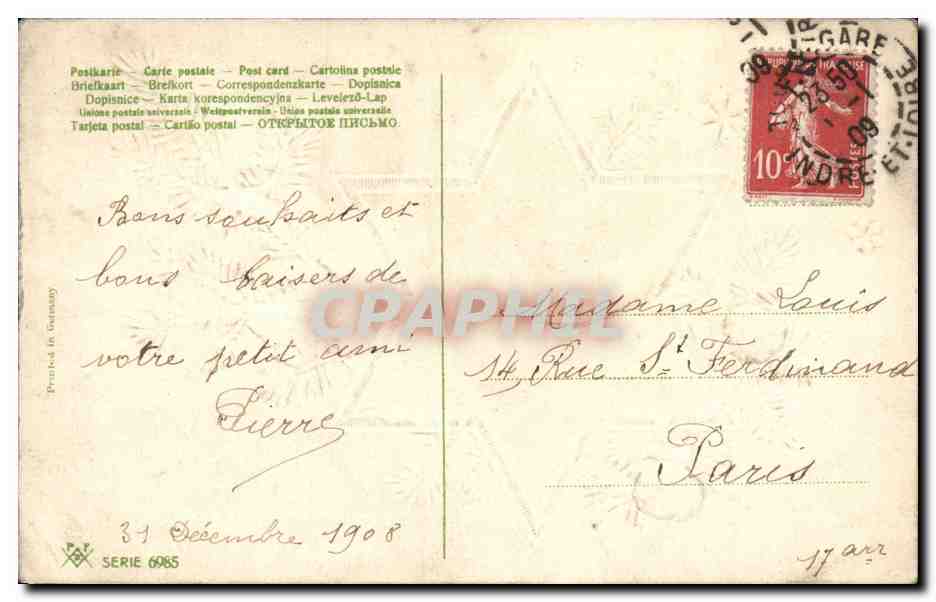 Postkarte — Carte postale — Post card — Cartolina postale
Briefkaart — Brefkort — Correspondenzkarte — Dopisnica
Dopisnice — Karta korespondencyjna — Levelező-Lap
Unione postale universale — Weltpostverein — Union postale universelle
Tarjeta postal — Cartão postal — ОТКРЫТОЕ ПИСЬМО
Bons souhaits et
bons baisers de
votre petit ami
Pierre
31 Décembre 1908
Printed in Germany
SERIE 6985
GARE
23-50
09
INDRE-ET-LOIRE
10c
POSTES
CPAPHIL
Madame Louis
14, Rue St Ferdinand
Paris
17 arr